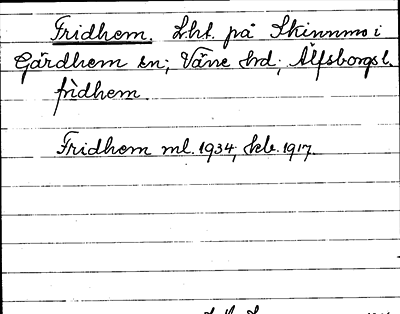 Fridhem. Lht. på Skinnmo i
Gärdhem sn; Väne hd; Älfsborgs l.
frìdhem
Fridhem ml. 1934, skb. 1917.